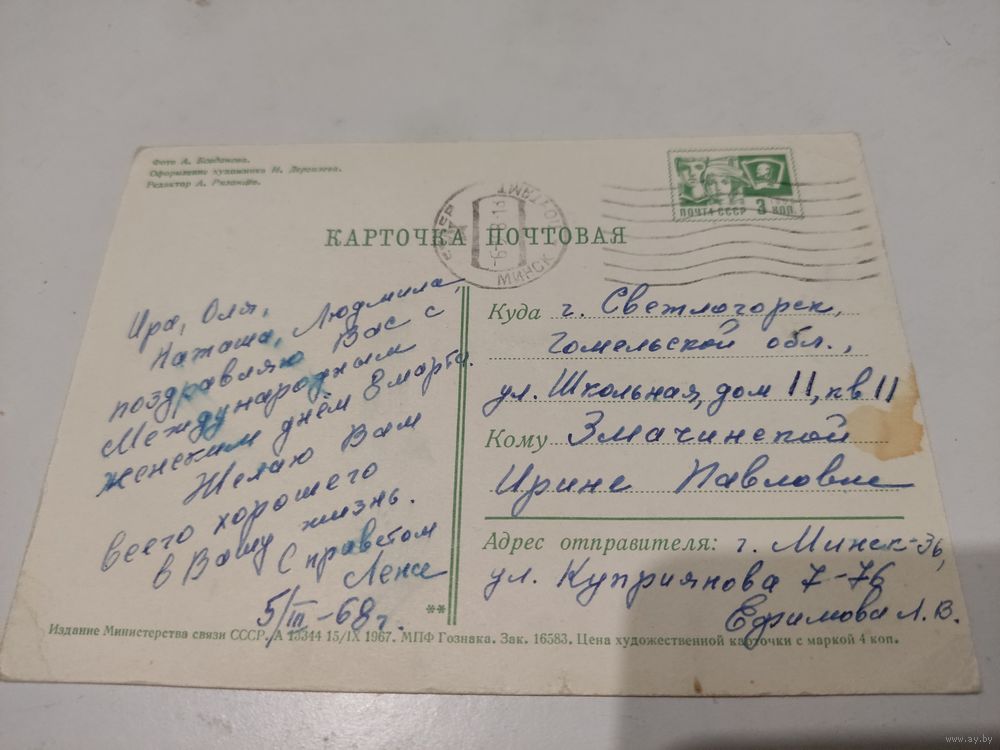 Фото А.
Оформление художника Н.
Редактор А.
ПОЧТА СССР 3 КОП
ПОЧТАМТ
МИНСК
КАРТОЧКА ПОЧТОВАЯ
Ира, Оля,
Наташа, Людмила,
поздравляю Вас с
Международным
женским днём 8 марта.
Желаю Вам
всего хорошего
в Вашу жизнь.
С приветом
Лена
5/III-68 г.
Куда г. Светлогорск,
Гомельской обл.,
ул. Школьная, дом 11, кв 11
Кому Змачинской
Ирине Павловне
Адрес отправителя: г. Минск-36,
ул. Куприянова 7-76
Ефимова Л. В.
**
Издание Министерства связи СССР. А 13344 15/IX 1967. МПФ Гознака. Зак. 16583. Цена художественной карточки с маркой 4 коп.
www.ay.by